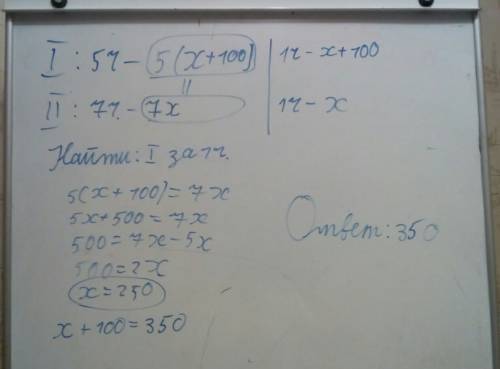 I : 5ч – 5(x+100) 1ч – x+100
II : 7ч. – 7x 1ч – x
Найти: I за 1ч.
5(x+100)=7x
5x+500=7x
500=7x-5x
500=2x
x=250
x+100=350
Ответ: 350